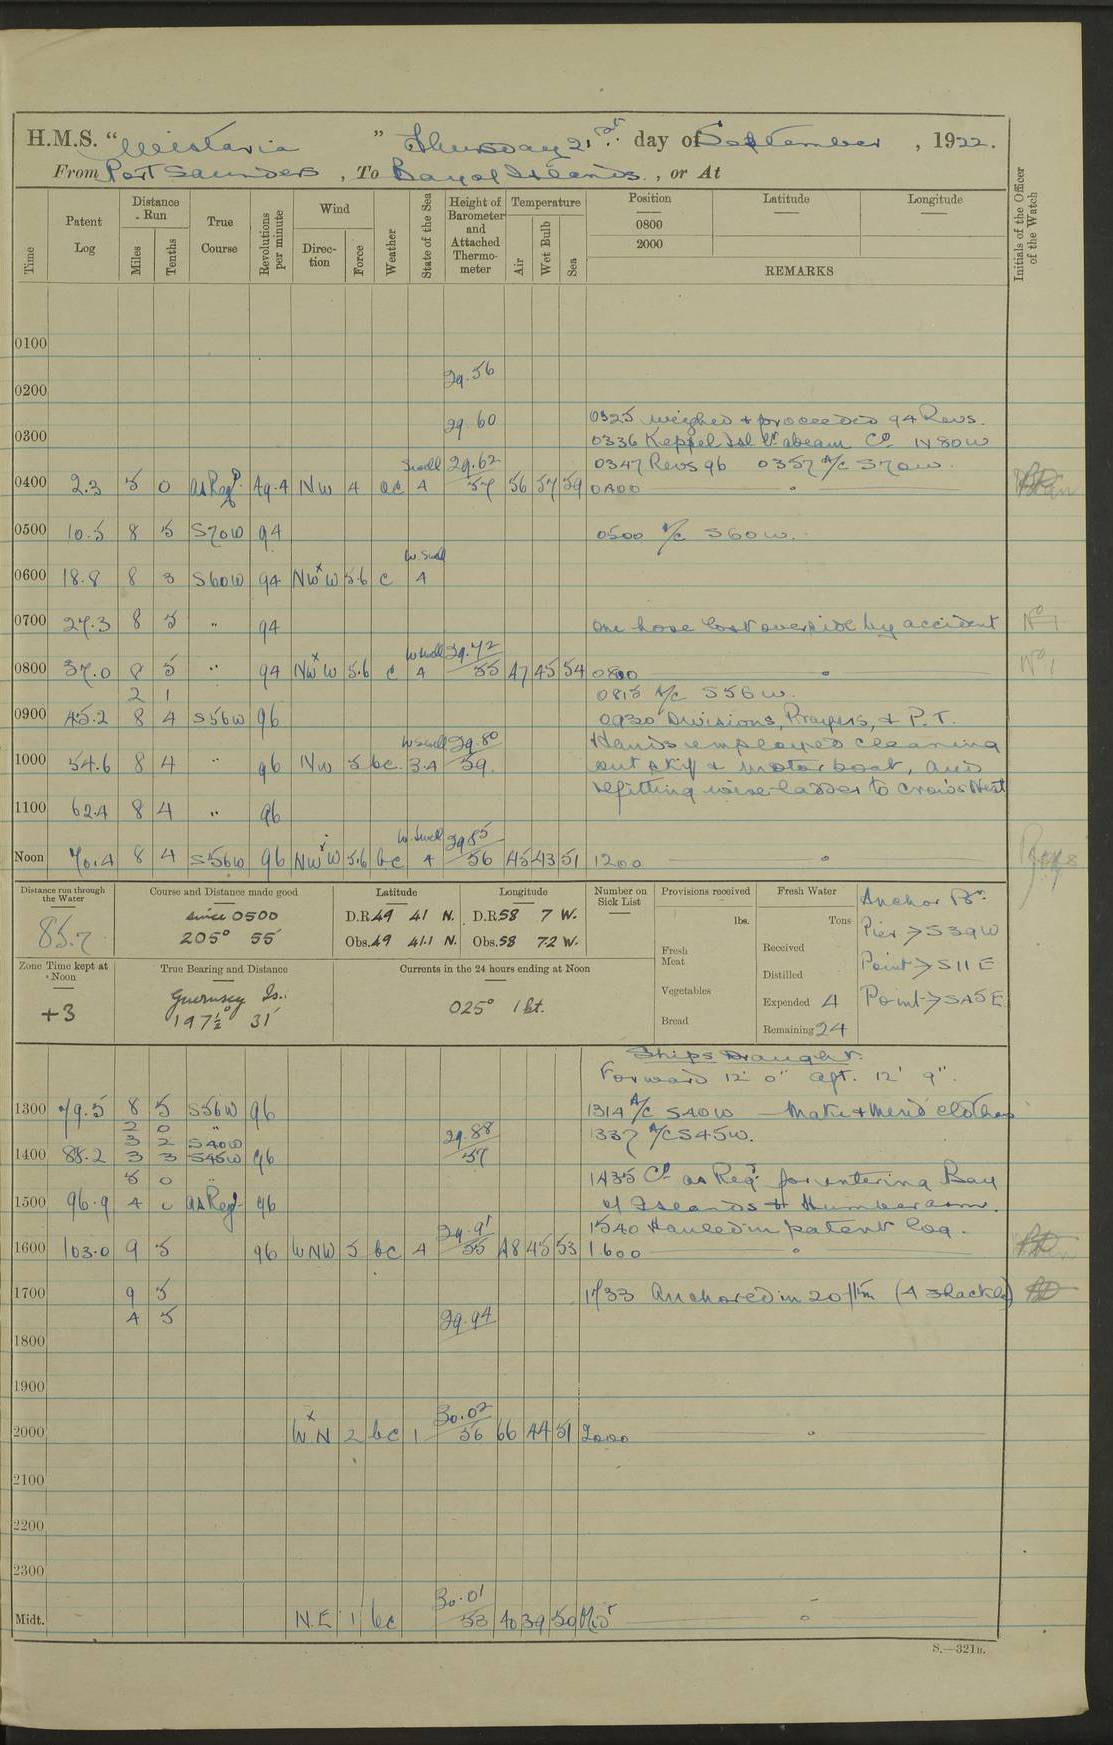 H.M.S. "Wistaria" Thursday 21st day of September, 1922.
From Port Saunders, To Bay of Islands, or At
Time
Patent Log
Distance Run
Miles
Tenths
True Course
Revolutions per minute
Wind
Direction
Force
Weather
State of the Sea
Height of Barometer and Attached Thermometer
Temperature
Air
Wet Bulb
Sea
Position
0800
2000
Latitude
Longitude
REMARKS
Initials of the Officer of the Watch
0100
29.56
0200
29.60 0325 weighed & proceeded 94 Revs.
0300 0336 Keppel Isl Lt abeam Co N80W
Swell 29.62 0347 Revs 96 0357 A/C S70W.
0400 2.3 5 0 as Reqd. 49.4 NW 4 oc 4 57 56 57 59 0400
0500 10.5 8 5 S70W 94 0500 A/C S60W.
W Swell
0600 18.8 8 3 S60W 94 NWxW 5.6 c 4
0700 27.3 8 5 " 94 One hose lost overside by accident No 1
W Swell 29.72
0800 37.0 8 5 " 94 NWxW 5.6 c 4 55 47 45 54 0800 No 1
2 1 0815 A/C S56W.
0900 45.2 8 4 S56W 96 0920 Divisions, Prayers, & P.T.
W Swell 29.80 Hands employed cleaning
1000 54.6 8 4 " 96 NW 5 bc 3.4 59 out skiff & motor boat, and
refitting wire-ladder to Crow's Nest
1100 62.4 8 4 " 96
W. Swell 29.85
Noon 70.4 8 4 S56W 96 NWxW 5.6 bc 4 56 45 43 51 1200
Distance run through the Water
85.7
Course and Distance made good
since 0500
205° 55
Latitude
D.R. 49 41 N.
Obs. 49 41.1 N.
Longitude
D.R. 58 7 W.
Obs. 58 7.2 W.
Number on Sick List
Provisions received
lbs.
Fresh Meat
Vegetables
Bread
Fresh Water
Tons
Received
Distilled
Expended 4
Remaining 24
Anchor Bn.
Pier > S39W
Point > S11E
Point > S45E
Zone Time kept at Noon
+3
True Bearing and Distance
Guernsey Is.
197½° 31'
Currents in the 24 hours ending at Noon
025° 1 kt.
Ships Draught.
Forward 12' 0" aft. 12' 9".
1300 79.5 8 5 S56W 96 1314 A/C S40W — Make & Mend clothes
2 0 " 1337 A/C S45W.
3 2 S40W 29.88
1400 88.2 3 3 S45W 96 57
5 0 " 1435 Co as Reqd for entering Bay
1500 96.9 4 0 as Reqd 96 of Islands & Humber arm.
29.91 1540 Hauled in patent log.
1600 103.0 9 5 96 WNW 5 bc 4 55 48 45 53 1600
1700 9 5 1733 Anchored in 20 fm (4 shackles)
4 5 29.94
1800
1900
30.02
2000 WxN 2 bc 1 56 66 44 51 2000
2100
2200
2300
30.01
Midt. N.E 1 bc 53 40 39 50 Midt
S.—321B.